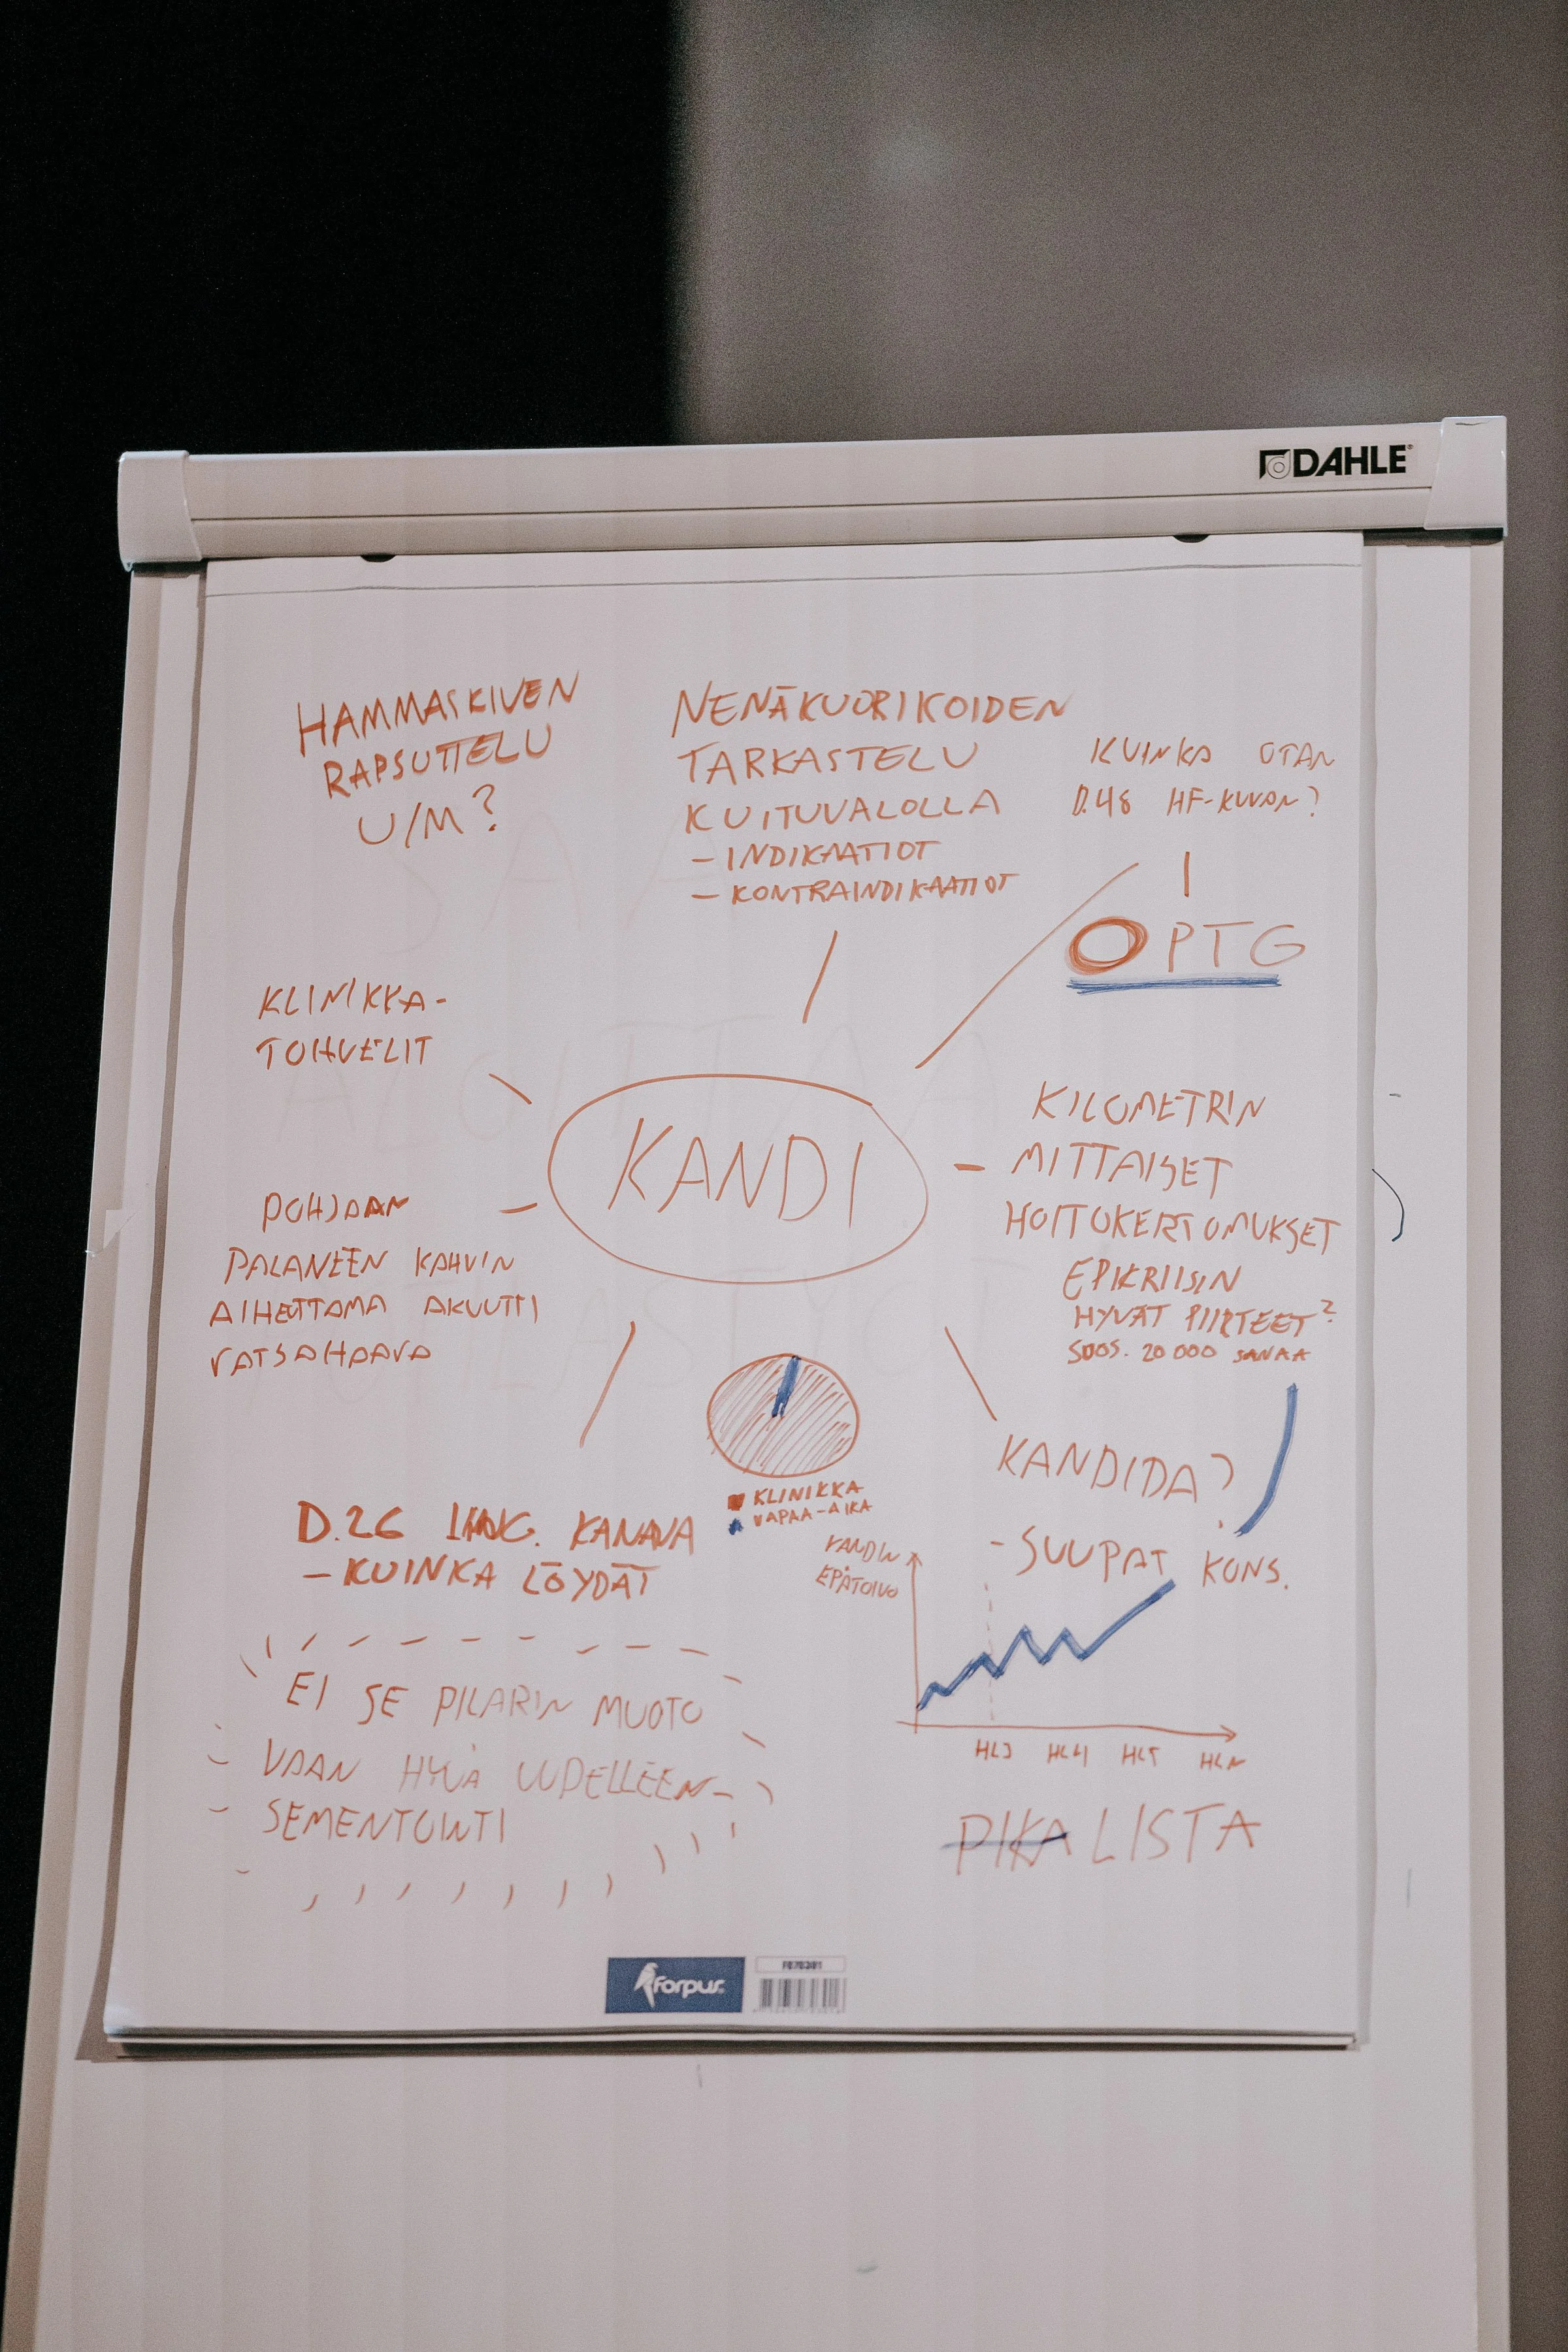 DAHLE
HAMMASKIVEN
RAPSUTTELU
U/M?
NENÄKUORIKOIDEN
TARKASTELU
KUITUVALOLLA
- INDIKAATIOT
- KONTRAINDIKAATIOT
KUINKA OTAN
D.48 HF-KUVAN?
OPTG
KLINIKKA-
TOHVELIT
KANDI
KILOMETRIN
MITTAISET
HOITOKERTOMUKSET
EPIKRIISIN
HYVÄT PIIRTEET?
SUOS. 20 000 SANAA
POHJAAN
PALANEEN KAHVIN
AIHEUTTAMA AKUUTTI
VATSAHAAVA
KLINIKKA
VAPAA-AIKA
KANDIDA?
- SUUPAT KONS.
D.26 KANAVA
- KUINKA LÖYDÄT
KANDIN
EPÄTOIVO
HL3 HL4 HL5 HLN
EI SE PILARIN MUOTO
VAAN HYVÄ UUDELLEEN-
SEMENTOINTI
PIKALISTA
forpus